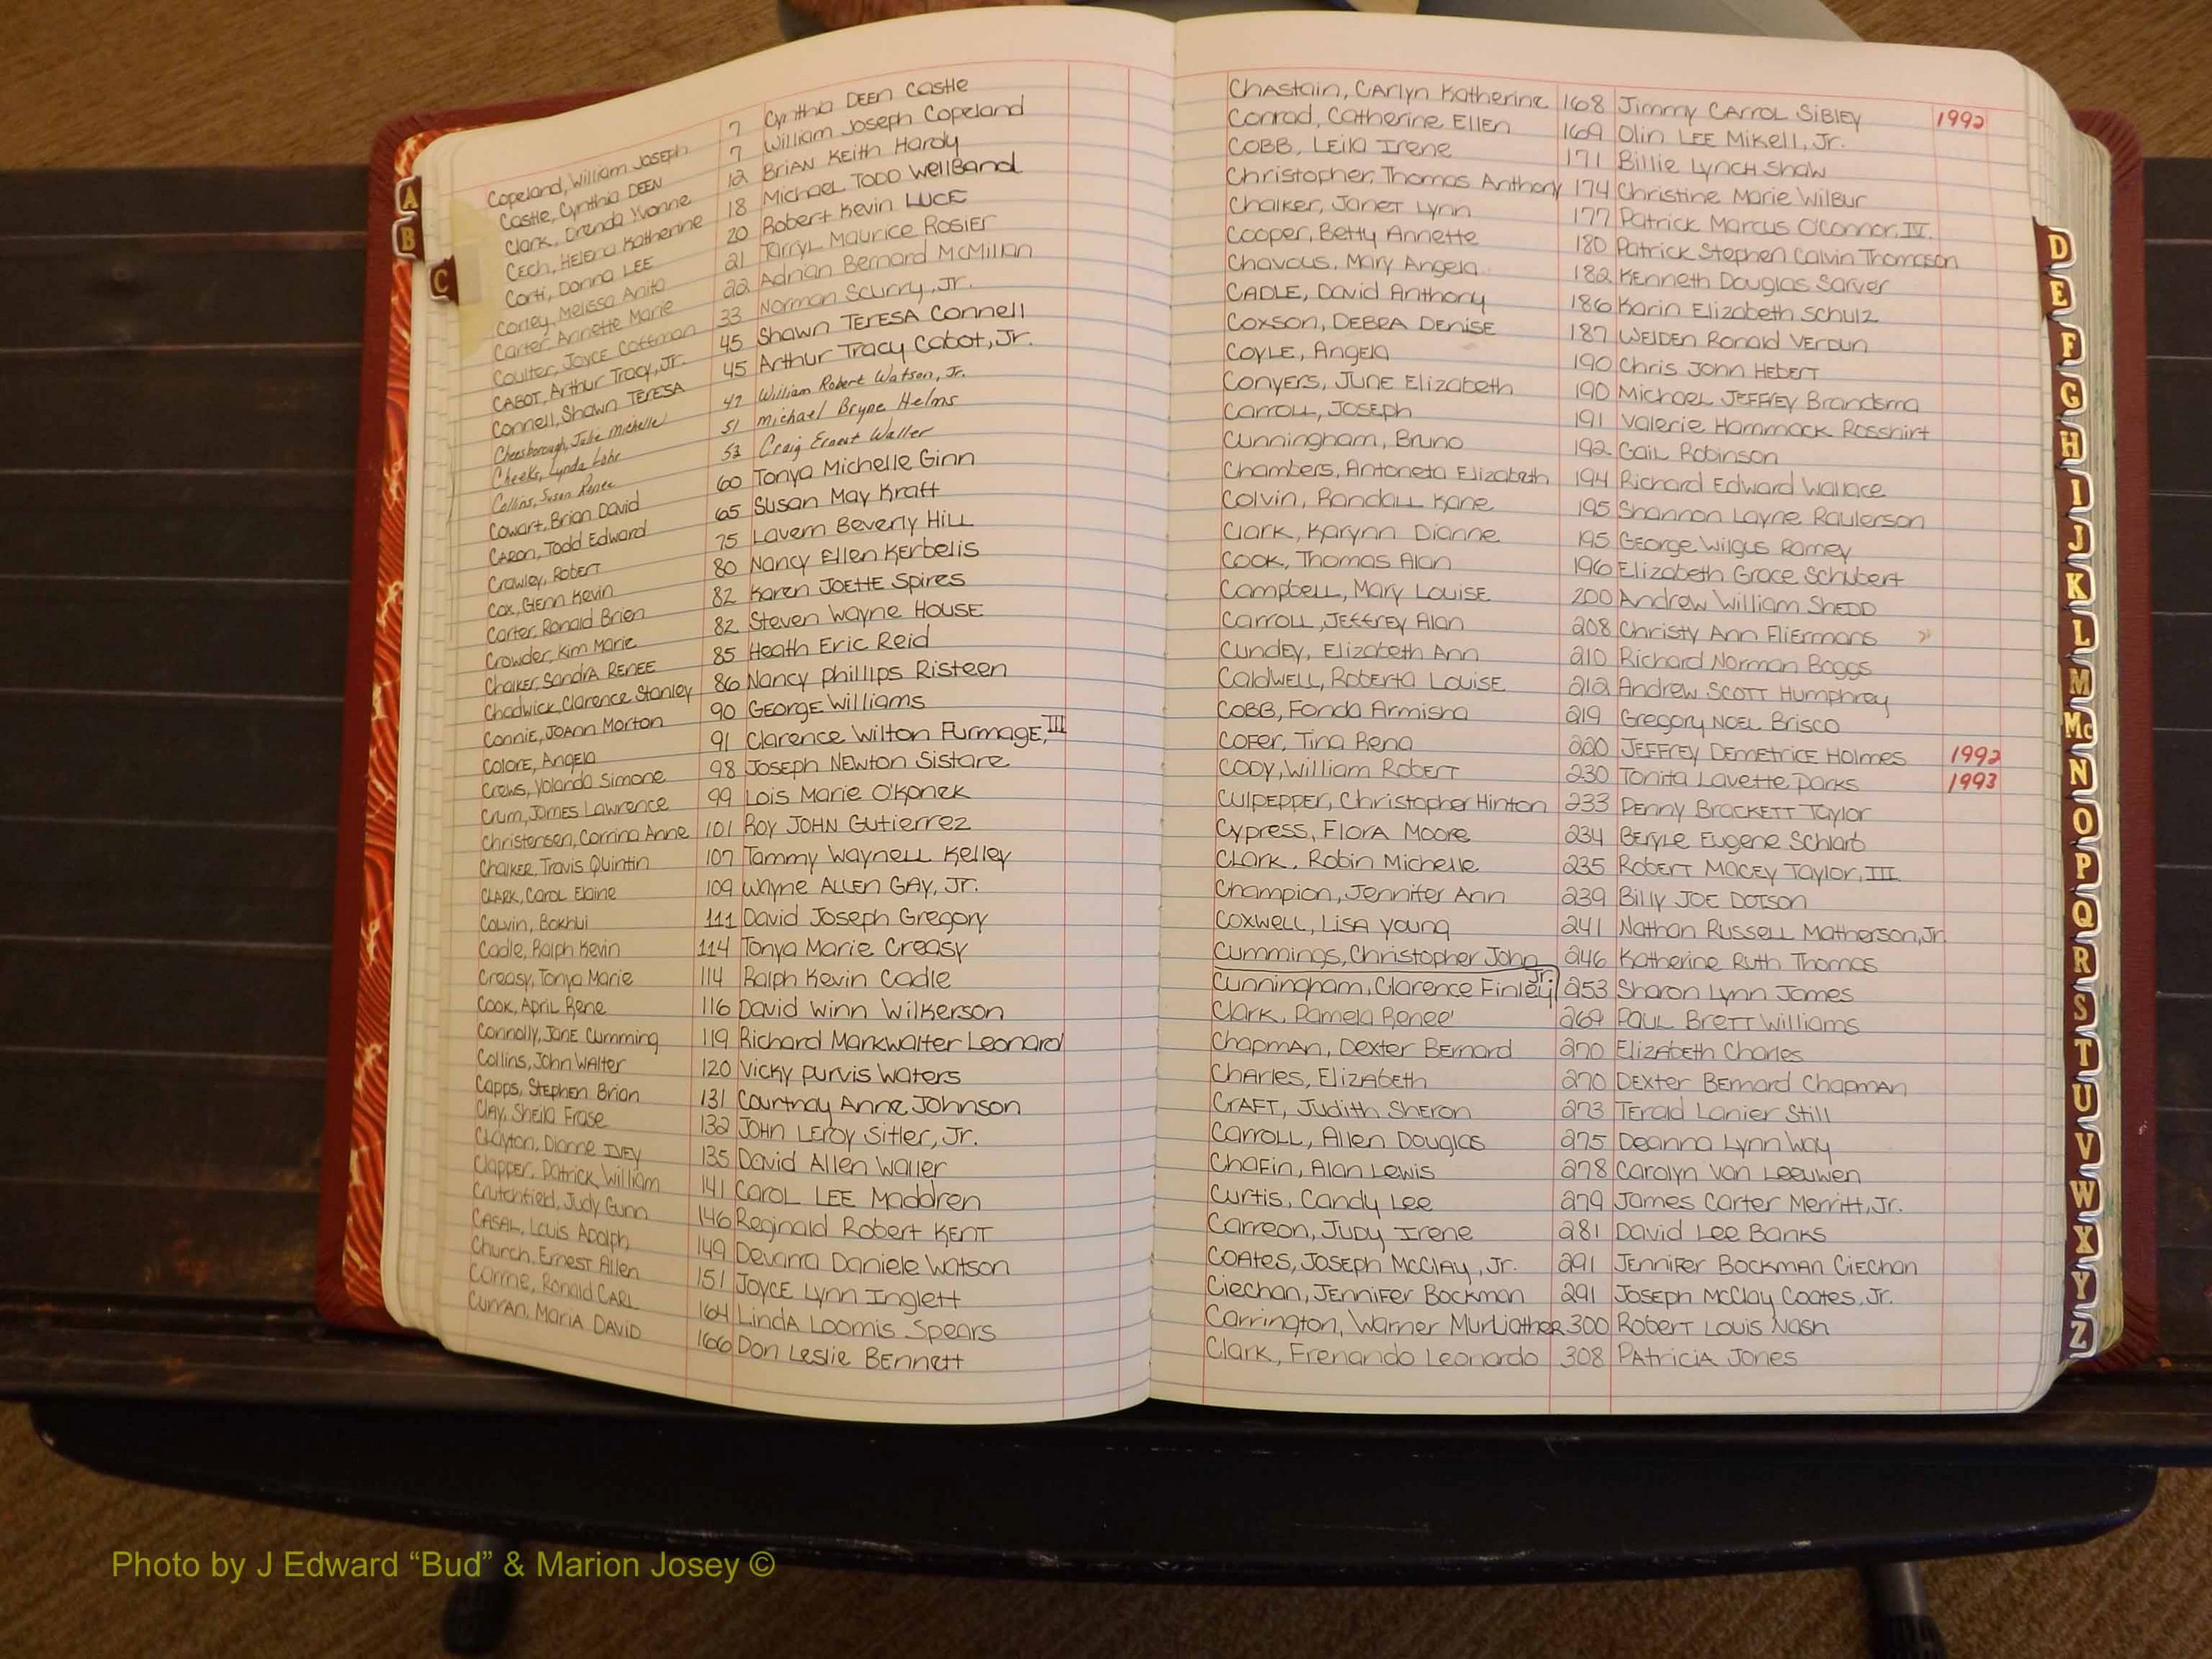 Copeland, William Joseph 7 Cynthia DEEN Castle
Castle, Cynthia DEEN 7 William Joseph Copeland
Clark, Drenda Yvonne 12 Brian Keith Hardy
Cech, Helena Katherine 18 Michael TODD Wellband
Corti, Donna LEE 20 Robert Kevin LUCE
Corley, Melissa Anita 21 Tarryl Maurice Rosier
Carter, Annette Marie 22 Adrian Bernard McMillan
Coulter, Joyce Coffman 33 Norman Scurry, Jr.
CABOT, Arthur Tracy, Jr. 45 Shawn TERESA Connell
Connell, Shawn TERESA 45 Arthur Tracy Cabot, Jr.
Cheesborough, Julie Michelle 47 William Robert Watson, Jr.
Cheeks, Lynda Lohr 51 Michael Bryne Helms
Collins, Susan Renee 53 Craig Ernest Waller
Cowart, Brian David 60 Tonya Michelle Ginn
CARON, Todd Edward 65 Susan May Kraft
Crawley, Robert 75 Lavern Beverly Hill
Cox, Glenn Kevin 80 Nancy Ellen Kerbelis
Carter, Ronald Brien 82 Karen JOETTE Spires
Crowder, Kim Marie 82 Steven Wayne HOUSE
Chalker, SANDRA RENEE 85 Heath Eric Reid
Chadwick, Clarence Stanley 86 Nancy phillips Risteen
Connie, JOANN Morton 90 GEORGE Williams
Colore, Angela 91 Clarence Wilton Furmage, III
Crews, Yolanda Simone 98 JOSEPH NEWton Sistare
Crum, James Lawrence 99 Lois Marie O'Konek
Christensen, Corrina Anne 101 Roy JOHN Gutierrez
Chalker, Travis Quintin 107 Tammy Waynell Kelley
CLARK, Carol Elaine 109 Wayne ALLEN GAY, Jr.
Colvin, Bokhui 111 David Joseph Gregory
Cadle, Ralph Kevin 114 Tonya Marie Creasy
Creasy, Tonya Marie 114 Ralph Kevin Cadle
Cook, April Rene 116 David Winn Wilkerson
Connolly, JANE Cumming 119 Richard Markwalter Leonard
Collins, John Walter 120 Vicky purvis Waters
Capps, Stephen Brian 131 Courtnay Anne Johnson
Clay, Sheila Frase 132 JOHN LEROY Sitler, Jr.
Clayton, Dianne IVEY 135 David Allen Waller
Clapper, Patrick William 141 CAROL LEE Maddren
Crutchfield, Judy Gunn 146 Reginald Robert KENT
CASAL, Louis Adolph 149 Devarra Daniele Watson
Church, Ernest Allen 151 JOYCE Lynn Inglett
Corrie, Ronald CARL 164 LINDA Loomis Spears
Curran, Maria DAVID 166 Don Leslie BENNETT
Chastain, Carlyn Katherine 168 Jimmy CARROL SIBLEY 1992
Conrad, Catherine Ellen 169 Olin LEE Mikell, Jr.
COBB, Leila Irene 171 Billie Lynch Shaw
Christopher, Thomas Anthony 174 Christine Marie Wilbur
Chalker, Janet Lynn 177 Patrick Marcus O'Connor, IV.
Cooper, Betty Annette 180 Patrick Stephen Calvin Thomason
Chavous, Mary Angela 182 Kenneth Douglas Sarver
CADLE, David Anthony 186 Karin Elizabeth Schulz
Coxson, DEBRA Denise 187 WELDEN Ronald Verdun
COYLE, Angela 190 Chris John HEBERT
Conyers, JUNE Elizabeth 190 Michael JEFFREY Brandsma
Carroll, JOSEPH 191 Valerie Hammock Rosshirt
Cunningham, Bruno 192 Gail Robinson
Chambers, Antoneta Elizabeth 194 Richard Edward Wallace
Colvin, Randall Kane 195 Shannon Layne Raulerson
Clark, Karynn Dianne 195 George Wilgus Ramey
Cook, Thomas Alan 196 Elizabeth Grace Schubert
Campbell, Mary Louise 200 Andrew William SHEDD
Carroll, Jeffrey Alan 208 Christy Ann Fliermans
Cundey, Elizabeth Ann 210 Richard Norman Boggs
Caldwell, Roberta Louise 212 Andrew SCOTT Humphrey
COBB, Fonda Armisha 219 Gregory NOEL Brisco
Cofer, Tina Rena 220 JEFFREY DEMETRICE Holmes 1992
CODY, William Robert 230 Tonita Lavette Parks 1993
Culpepper, Christopher Hinton 233 Penny BROCKETT Taylor
Cypress, Flora Moore 234 Beryle Eugene Schlarb
Clark, Robin Michelle 235 ROBERT MACEY Taylor, III
Champion, Jennifer Ann 239 Billy JOE DOTSON
Coxwell, Lisa Young 241 Nathan RUSSELL Matherson, Jr.
Cummings, Christopher John 246 Katherine Ruth Thomas
Cunningham, Clarence Finley Jr. 253 Sharon Lynn James
Clark, Pamela Renee' 269 PAUL BRETT Williams
Chapman, Dexter Bernard 270 Elizabeth Charles
Charles, Elizabeth 270 DEXTER Bernard Chapman
CRAFT, Judith Sheron 273 Terald Lanier Still
Carroll, Allen Douglas 275 Deanna Lynn Way
Chafin, Alan Lewis 278 Carolyn Van Leeuwen
Curtis, Candy Lee 279 James Carter Merritt, Jr.
Carreon, Judy Irene 281 David Lee Banks
COATES, JOSEPH McClay, Jr. 291 Jennifer Bockman Ciechan
Ciechan, Jennifer Bockman 291 Joseph McClay Coates, Jr.
Carrington, Warner 300 Robert Louis Nash
Clark, Frenando Leonardo 308 Patricia Jones
A
B
C
D
E
F
G
H
I
J
K
L
M
Mc
N
O
P
Q
R
S
T
U
V
W
X
Y
Z
Photo by J Edward “Bud” & Marion Josey ©